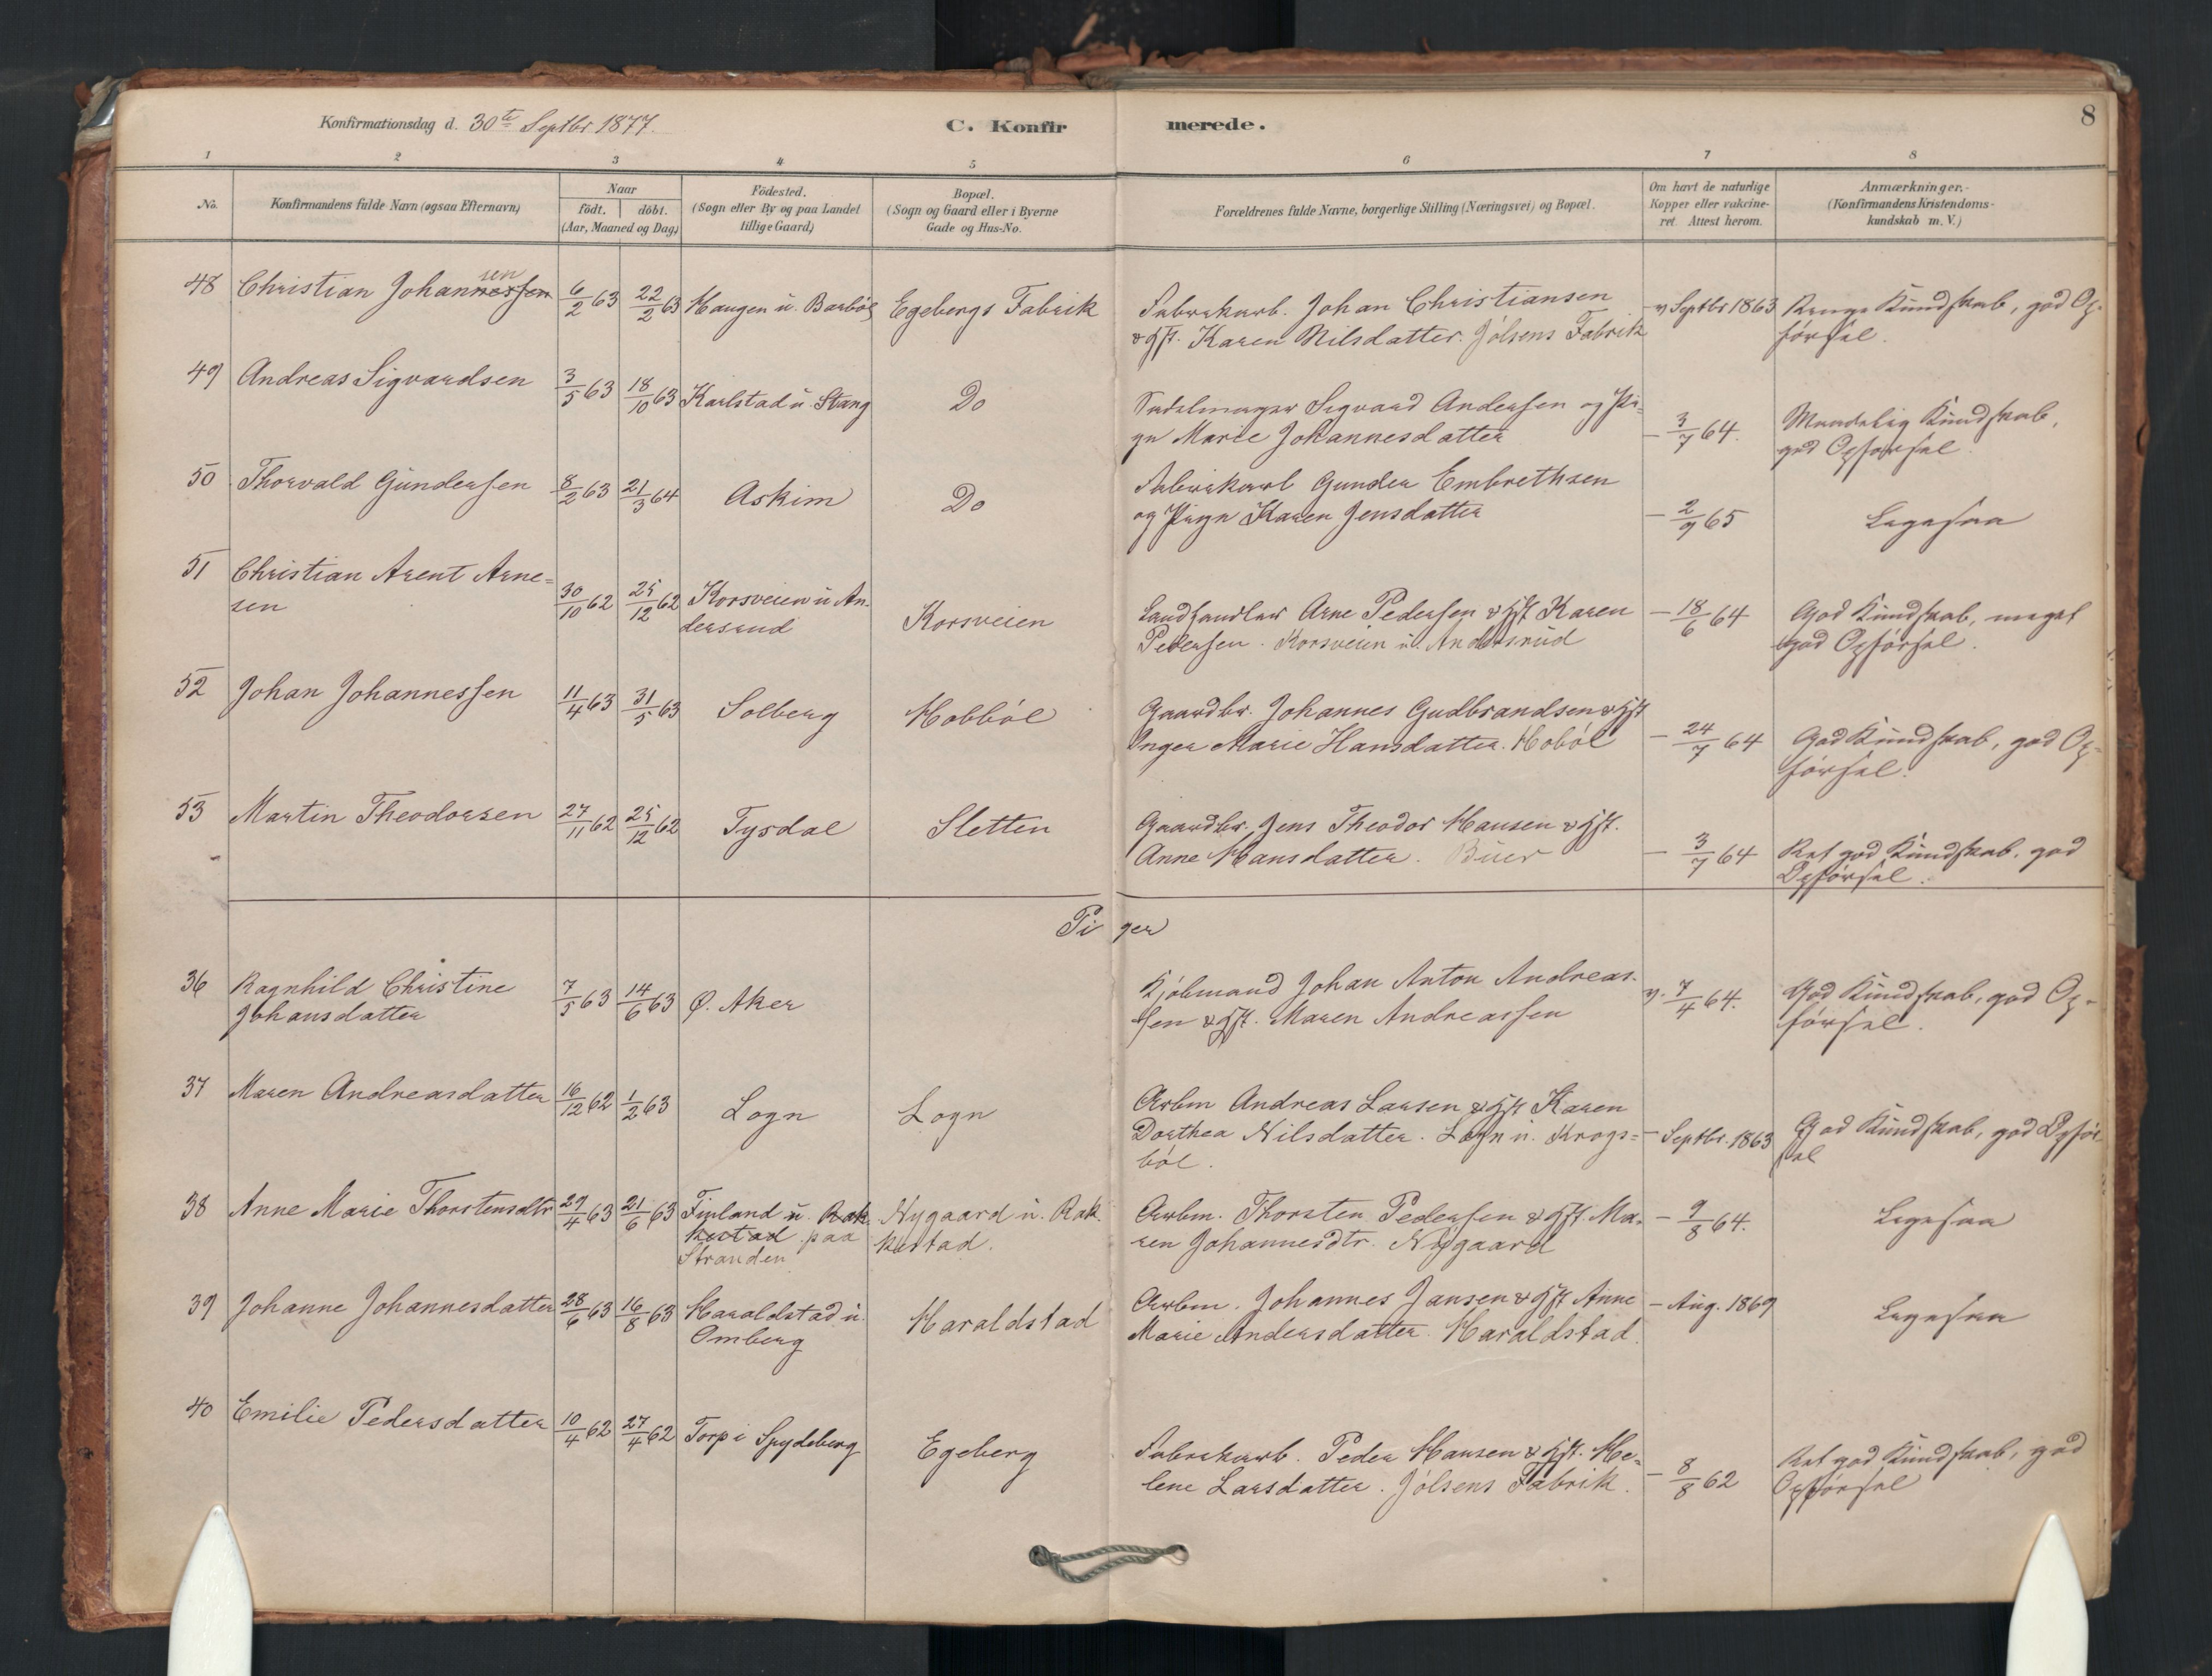 Konfirmationsdag d. 30te Septbr 1877.
C. Konfirmerede.
8
1 2 3 4 5 6 7 8
No.
Konfirmandens fulde Navn (ogsaa Efternavn)
Naar
født. døbt.
(Aar, Maaned og Dag)
Fødested.
(Sogn eller By og paa Landet
tillige Gaard)
Bopæl.
(Sogn og Gaard eller i Byerne
Gade og Hus-No.
Forældrenes fulde Navne, borgerlige Stilling (Næringsvei) og Bopæl.
Om havt de naturlige
Kopper eller vakcine-
ret. Attest herom.
Anmærkninger.
(Konfirmandens Kristendoms-
kundskab m. V.)
48 Christian Johannessen sen 6/2 63 22/2 63 Haugen u. Barbøl Egebergs Fabrik
Fabrikarb. Johan Christiansen
& Hst. Karen Nilsdatter. Jølsens Fabrik
v Septbr 1863
Kundskab, god Op-
førsel.
49 Andreas Sigvardsen 3/5 63 18/10 63 Karlstad u. Stang Do
Sadelmager Sigvard Andersen og Pi-
ge Marie Johannesdatter
– 3/7 64.
Maadelig Kundskab,
god Opførsel.
50 Thorvald Gundersen 8/2 63 21/3 64 Askim Do
Fabrikarb Gunder Embrethsen
og Pige Karen Jensdatter
– 2/9 65
Ligesaa
51 Christian Arent Arne=
sen
30/10 62 25/12 62
Korsveien u An-
dersrud
Korsveien
Landhandler Arne Pedersen & Hst Karen
Pedersen. Korsveien u. Andersrud
– 18/6 64
God Kundskab, meget
god Opførsel.
52 Johan Johannessen 11/4 63 31/5 63 Solberg Hobbøl
Gaardbr. Johannes Gudbrandsen & Hst
Inger Marie Hansdatter. Hobøl
– 24/7 64
God Kundskab, god Op-
førsel.
53 Martin Theodorsen 27/11 62 25/12 62 Tysdal Sletten
Gaardbr. Jens Theodor Hansen & Hst.
Anne Hansdatter. Buer
– 3/7 64
Ret god Kundskab, god
Opførsel.
Piger
36 Ragnhild Christine
Johansdatter
7/5 63 14/6 63 Ø. Aker
Kjøbmand Johan Anton Andreas-
sen & Hst. Maren Andreassen
v. 7/4 64.
God Kundskab, god Op-
førsel.
37 Maren Andreasdatter 16/12 62 1/2 63 Logn Logn
Arbm Andreas Larsen & Hst Karen
Dorthea Nilsdatter. Logn u. Krogs=
bøl.
– Septbr. 1863
God Kundskab, god Opfør-
sel
38 Anne Marie Thorstensdtr 27/4 63 21/6 63
Finland u. Rak
kestad paa
Stranden
Nygaard u. Rak
kestad.
Arbm. Thorsten Pedersen & Hst. Ma-
ren Johannesdtr. Nygaard
– 9/8 64.
Ligesaa
39 Johanne Johannesdatter 28/6 63 16/8 63
Haraldstad u.
Omberg
Haraldstad
Arbm. Johannes Jansen & Hst Anne
Marie Andersdatter. Haraldstad.
– Aug. 1869
Ligesaa
40 Emilie Pedersdatter 10/4 62 27/4 62 Torp i Spydeberg Egeberg
Fabrikarb. Peder Hansen & Hst. He-
lene Larsdatter. Jølsens Fabrik.
– 8/8 62
Ret god Kundskab, god
Opførsel